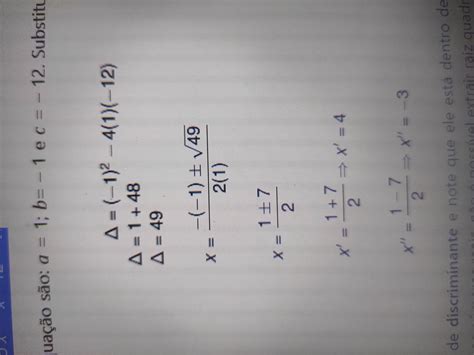 uação são: a = 1; b = − 1 e c = − 12. Substitu
Δ = (−1)² − 4(1)(−12)
Δ = 1 + 48
Δ = 49
x = −(−1) ± √49 / 2(1)
x = 1 ± 7 / 2
x′ = 1 + 7 / 2 ⇒ x′ = 4
x″ = 1 − 7 / 2 ⇒ x″ = −3
de discriminante e note que ele está dentro de